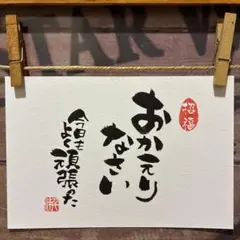 招福
おかえり
なさい
今日も
よく頑張ったね